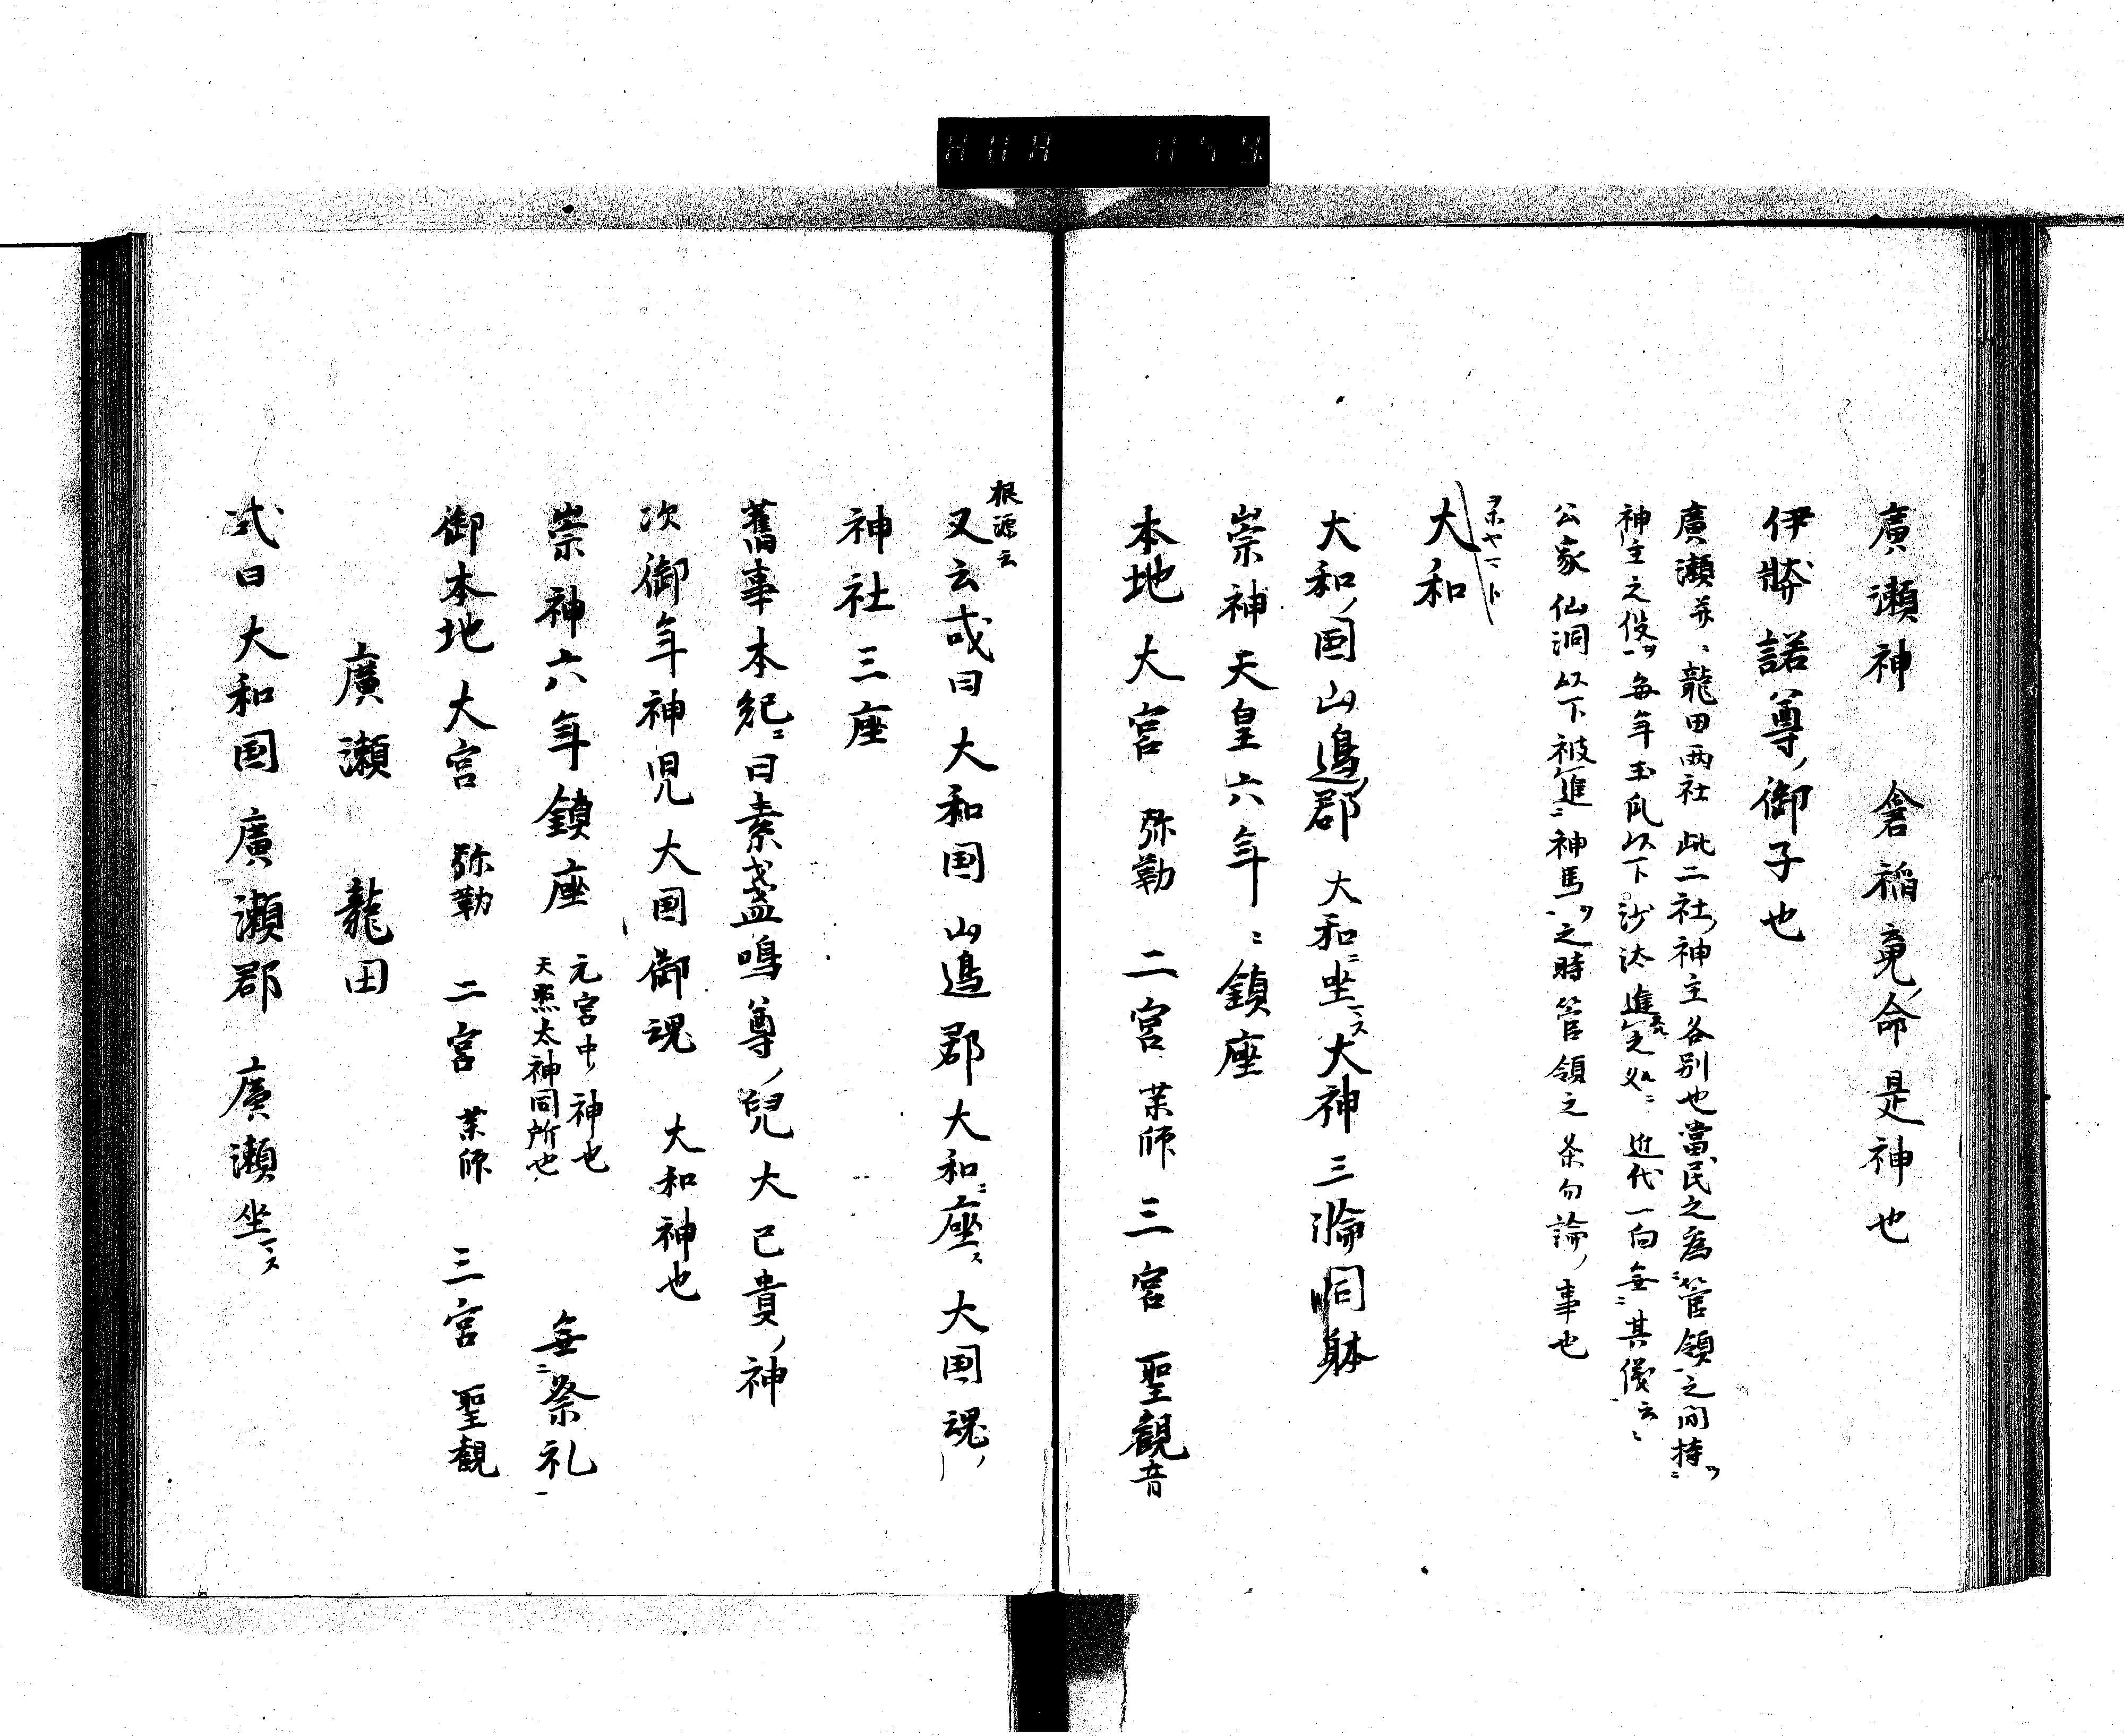 廣瀬神　倉稲䰟命是神也
伊弉諾尊ノ御子也
廣瀬并ニ龍田両社此二社ノ神主各別也當民之為ニ管領之間持ニ
神主之役ヲ毎年玉瓜以下沙汰進近代一向無ニ其儀云ニ
公家仙洞以下被進ニ神馬ヲ之時管領之条勿論ノ事也
ヲホヤマト
大和
大和ノ国山邉ノ郡大和ニ坐マス大神三瀹同躰
崇神天皇六年ニ鎮座
本地大宮　弥勒　二宮　茉師　三宮　聖観音
根源云
又云或曰大和国山邉郡大和ニ座ス大国魂ノ
神社三座
舊事本紀ニ曰素盞嗚尊ノ兒大己貴ノ神
次御年神児大国御魂　大和神也
崇神六年鎮座　元宮中ノ神也　天照太神同所也　無ニ祭礼一
御本地大宮　弥勒　二宮　茉師　三宮　聖観
廣瀬　龍田
式曰大和国廣瀬郡　廣瀬坐マス